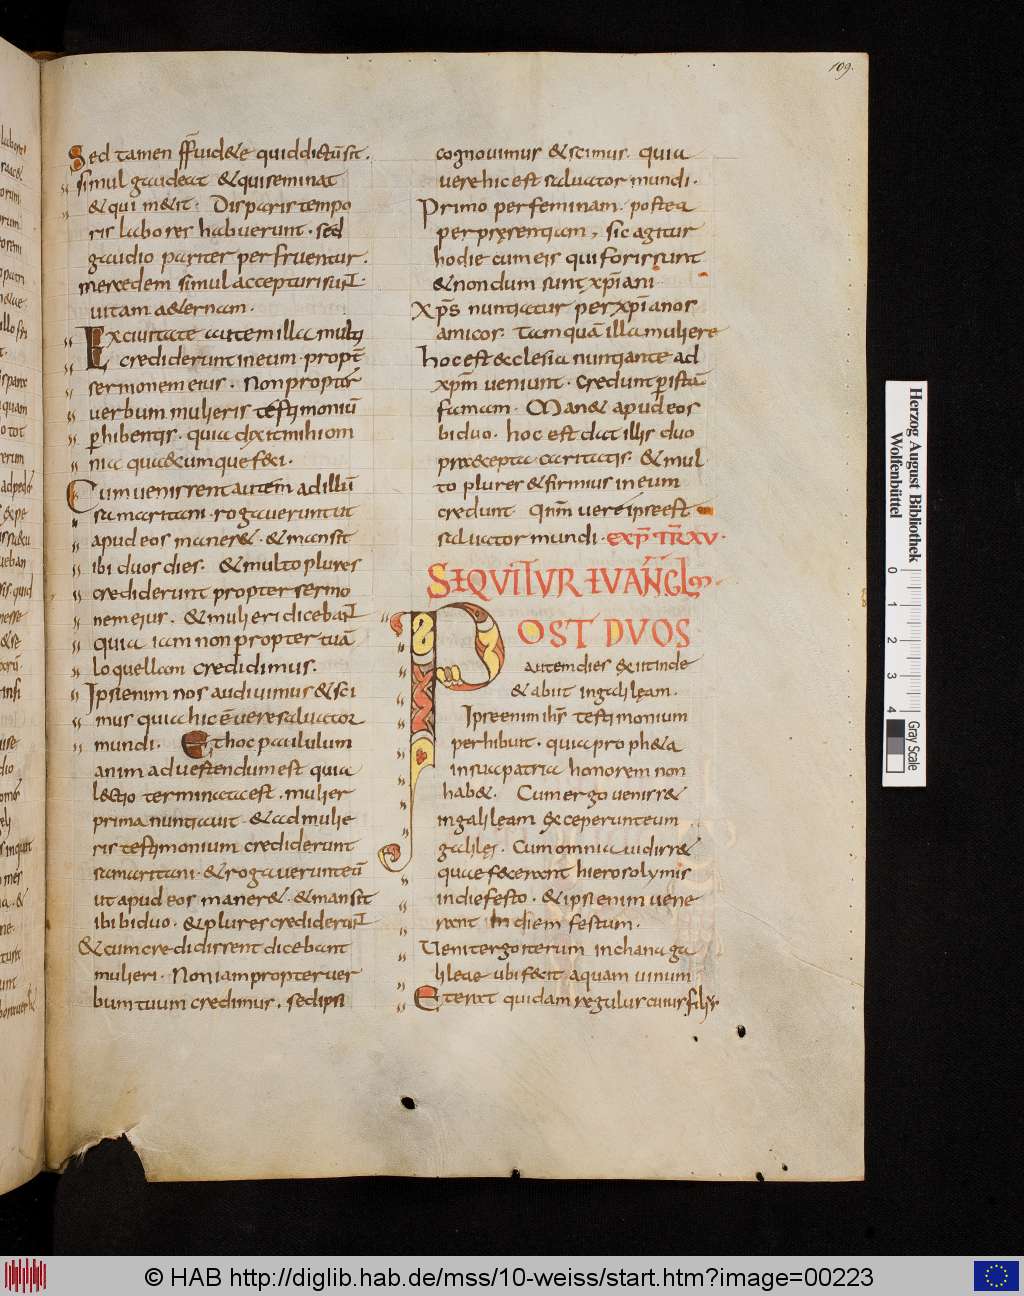 109.
Sed tamen fr̄ uid&e quid dictū sit.
simul gaudeat & qui seminat
& qui m&it. Disparis tempo
ris labores habuerunt. sed
gaudio pariter perfruentur.
mercedem simul accepturi sunt.
uitam a&ernam.
Ex ciuitate autem illa multi
crediderunt in eum. propt̄
sermonem eius. Non propter
uerbum mulieris testimoniū
phibentis. quia dixit mihi om
nia quaecumque feci.
Cum uenissent autem ad illū
samaritani. rogauerunt ut
apud eos maner&. & mansit
ibi duos dies. & multo plures
crediderunt propter sermo
nem eius. & mulieri dicebant
quia iam non propter tuā
loquellam credidimus.
Ipsi enim nos audiuimus & sci
mus quia hic ē uere saluator
mundi. Et hoc paululum
animaduertendum est quia
lectio terminata est. mulier
prima nuntiauit. & ad mulie
ris testimonium crediderunt
samaritani. & rogauerunt eū
ut apud eos maner&. & mansit
ibi biduo. & plures crediderunt
& cum credidissent dicebant
mulieri. Non iam propter uer
bum tuum credimus. sed ipsi
cognouimus & scimus. quia
uere hic est saluator mundi.
Primo per feminam. postea
per pręsentiam, sic agitur
hodie cum eis qui foris sunt
& nondum sunt xp̄iani
Xp̄s nuntiatur per xp̄ianos
amicos. Tamquā illa muliere
hoc est ecclesia nuntiante ad
xp̄m ueniunt. credunt p istā
famam. Man& apud eos
biduo. hoc est dat illis duo
praecepta caritatis. & mul
to plures & firmius in eum
credunt. qn̄m uere ipse est
saluator mundi. EXP̄ TR̄ XV.
SEQVITVR EVANGLm.
POST DVOS
autem dies exiit inde
& abiit in galilęam.
Ipse enim ih̄s testimonium
perhibuit. quia proph&a
in sua patria honorem non
hab&. Cum ergo uenisset
in galilęam exceperunt eum
galilęi. Cum omnia uidissent
quae fecerant hierosolymis
in die festo. & ipsi enim uene
rant in diem festum.
Uenit ergo iterum in chana ga
lileae ubi fecit aquam uinum
Et erat quidam regulus cuius filius
Herzog August Bibliothek
Wolfenbüttel
0 1 2 3 4
Gray Scale
© HAB http://diglib.hab.de/mss/10-weiss/start.htm?image=00223